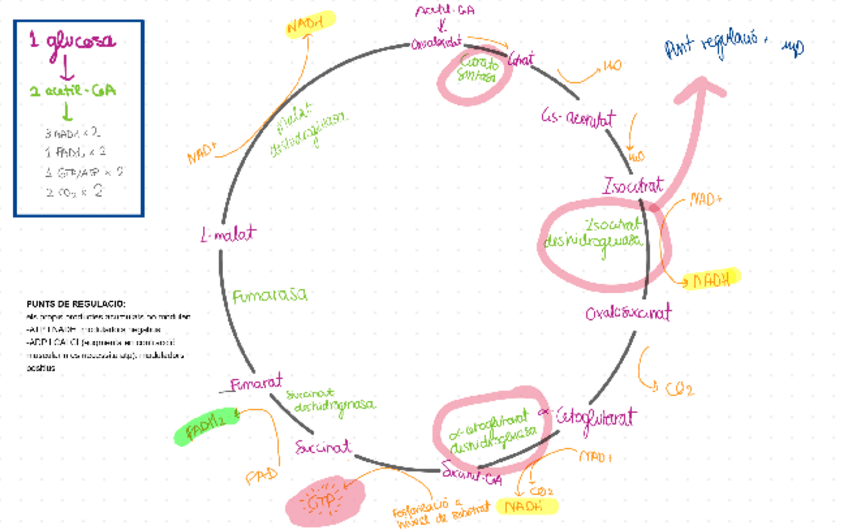 1 glucosa
2 acetil-CoA
3 NADH x 2
1 FADH2 x 2
1 GTP/ATP x 2
2 CO2 x 2
Acetil-CoA
Oxalacetat
Citrat
Citrato
Sintasa
H2O
Cis-aconitat
H2O
Isocitrat
Punt regulació
NAD+
Isocitrat
deshidrogenasa
NADH
Oxalosuccinat
CO2
α-Cetoglutarat
α-cetoglutarat
deshidrogenasa
NAD+
CO2
NADH
Succinil-CoA
Fosforilació a
nivell de substrat
GTP
Succinat
FAD
FADH2
Succinat
deshidrogenasa
Fumarat
Fumarasa
L-malat
Malat
deshidrogenasa
NAD+
NADH
PUNTS DE REGULACIÓ:
els propis productes acumulats
-ATP I NADH: moduladors negatius
-ADP I CALCI (augmenta en contracció
muscular necessita atp): moduladors
positius